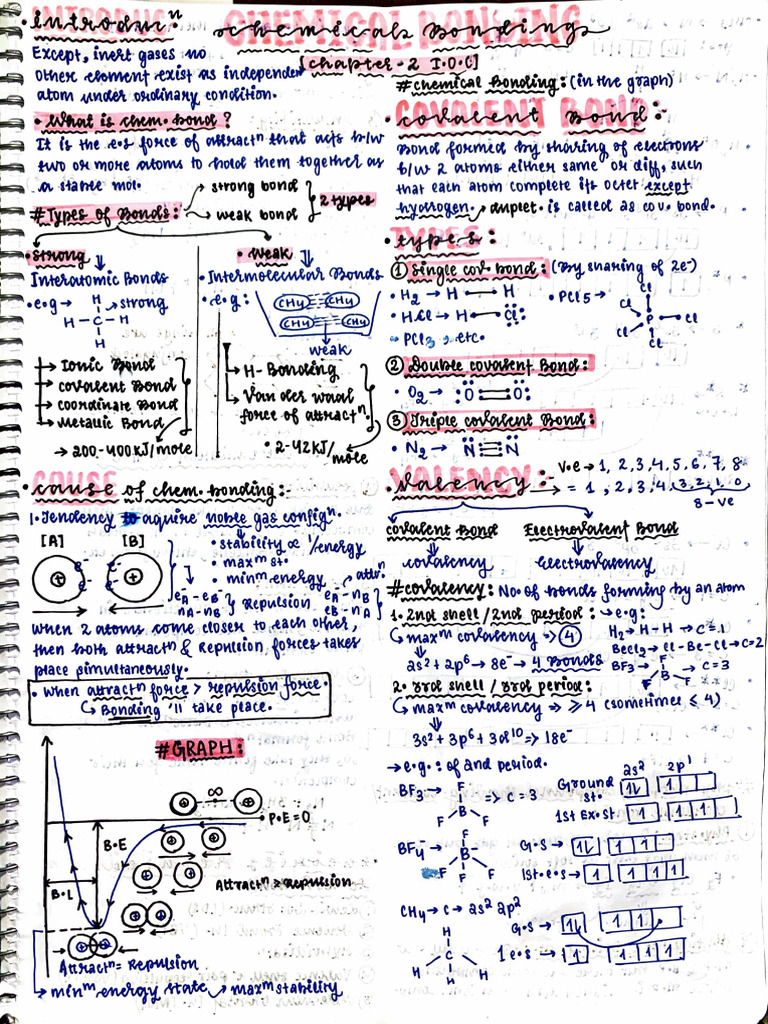 Chemical Bonding
[chapter-2 I.O.C]
• introducⁿ:
Except, inert gases no
other element exist as independent
atom under ordinary condition.
• What is chem. bond?
It is the e.s force of attractⁿ that acts b/w
two or more atoms to hold them together as
a stable mol.
# Types of Bonds:
strong bond
weak bond
2 types
• strong
Interatomic Bonds
• e.g → strong
H
H – C – H
H
→ Ionic Bond
→ covalent Bond
→ coordinate Bond
→ Metallic Bond
→ 200-400 KJ/mole
• weak
• Intermolecular Bonds
• e.g:
CH4 CH4
CH4 CH4
weak
→ H-Bonding
→ Van der waal
force of attractⁿ.
• 2-42 KJ/
mole
• cause of chem. bonding:-
1. Tendency to aquire noble gas configⁿ.
[A] [B]
+ e⁻ e⁻ +
• stability ∝ 1/energy
• maxᵐ st.
• minᵐ energy
eA-eB
nA-nB } Repulsion
attrⁿ
eA-nB
eB-nA
When 2 atoms come closer to each other,
then both attractⁿ & repulsion forces takes
place simultaneously.
• when attractⁿ force > repulsion force.
↳ Bonding 'll take place.
# GRAPH:
∞
P.E=0
B.E
B.L
Attractⁿ > repulsion
Attractⁿ = Repulsion
→ minᵐ energy state → maxᵐ stability
# chemical Bonding: (in the graph)
• covalent Bond:-
Bond formed by sharing of electrons
b/w 2 atoms either same or diff, such
that each atom complete its octet except
hydrogen. → duplet. is called as cov. bond.
• types:
① Single cov. bond: (By sharing of 2e⁻)
• H2 → H – H
• HCl → H – Cl:
• PCl3, etc.
• PCl5 →
Cl
Cl
P
Cl
Cl
Cl
② Double covalent Bond:
• O2 → :O=O:
③ Triple covalent Bond:
• N2 → N≡N
• Valency:-
V.e → 1, 2, 3, 4, 5, 6, 7, 8
→ = 1, 2, 3, 4, 3, 2, 1, 0
8-ve
covalent Bond Electrovalent Bond
covalency Electrovalency
# covalency: No. of bonds forming by an atom
1. 2nd shell/2nd period: → e.g:
↳ maxᵐ covalency → ④
2s² + 2p⁶ → 8e⁻ → 4 Bonds
H2 → H-H → C=1
BeCl2 → Cl-Be-Cl → C=2
BF3 → F B F F → C=3
2. 3rd shell/3rd period:
↳ maxᵐ covalency ⇒ ⩾ 4 (sometimes ⩽ 4)
3s² + 3p⁶ + 3d¹⁰ ⇒ 18e⁻
→ e.g.: of 2nd period.
2s² 2p¹
BF3 → F B F F ⇒ C=3
Ground st. → 1⇂ 1
1st Ex.st. 1 1 1
BF4⁻ → F B⁻ F F F
G.S → 1⇂ 1
1st.e.s → 1 1 1 1
CH4 → C → 2s² 2p²
H C H H H
G.S → 1⇂ 1 1
1 e.s → 1 1 1 1